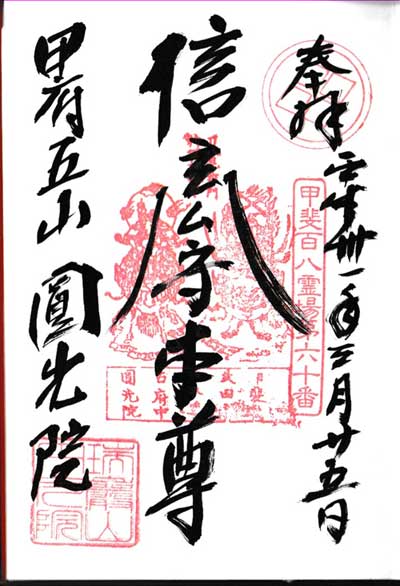 奉拝
平成卅一年三月廿五日
甲斐百八霊場第六十番
信玄公守本尊
甲府五山 圓光院
瑞巖山
圓光院